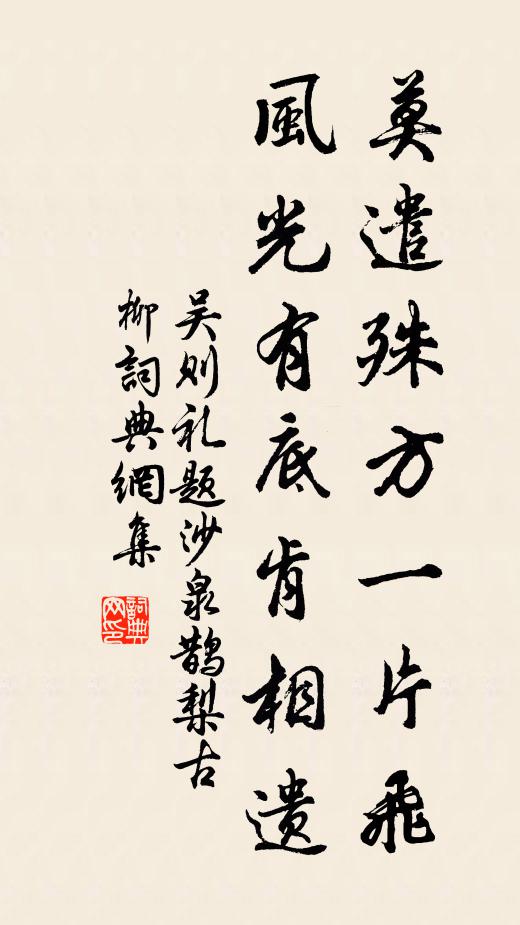 莫遣殊方一片飛
風光有底肯相遗
吴则礼题沙泉鹊梨古
柳詞典網集
詞典网印